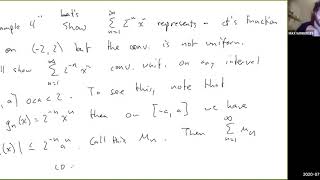 ample 4 Let's show ∞ Σ n=1 2^-n x^n represents a cts function
on (-2, 2) but the conv. is not uniform.
'll show ∞ Σ n=1 2^-n x^n conv. unif. on any interval
, a] 0<a<2. To see this, note that
g_n(x) = 2^-n x^n then on [-a, a] we have
(x)| ≤ 2^-n a^n. Call this M_n. Then ∞ Σ n=1 M_n
co
2020-07